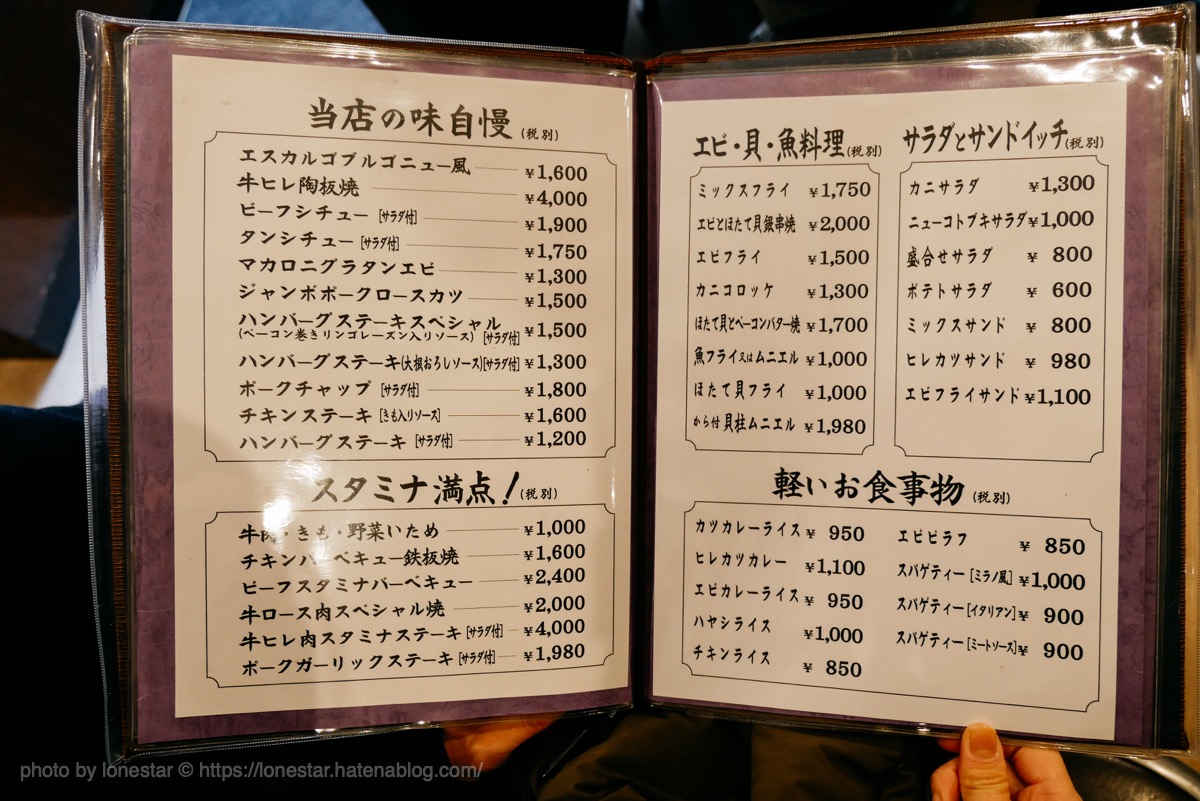 当店の味自慢(税別)
エスカルゴブルゴニュー風 ¥1,600
牛ヒレ陶板焼 ¥4,000
ビーフシチュー [サラダ付] ¥1,900
タンシチュー [サラダ付] ¥1,750
マカロニグラタンエビ ¥1,300
ジャンボポークロースカツ ¥1,500
ハンバーグステーキスペシャル ¥1,500
(ベーコン巻きリンゴレーズン入りソース) [サラダ付]
ハンバーグステーキ(大根おろしソース)[サラダ付] ¥1,300
ポークチャップ [サラダ付] ¥1,800
チキンステーキ [きも入りソース] ¥1,600
ハンバーグステーキ [サラダ付] ¥1,200
スタミナ満点!(税別)
牛肉・きも・野菜いため ¥1,000
チキンバーベキュー鉄板焼 ¥1,600
ビーフスタミナバーベキュー ¥2,400
牛ロース肉スペシャル焼 ¥2,000
牛ヒレ肉スタミナステーキ [サラダ付] ¥4,000
ポークガーリックステーキ [サラダ付] ¥1,980
エビ・貝・魚料理(税別)
ミックスフライ ¥1,750
エビとほたて貝銀串焼 ¥2,000
エビフライ ¥1,500
カニコロッケ ¥1,300
ほたて貝とベーコンバター焼 ¥1,700
魚フライ又はムニエル ¥1,000
ほたて貝フライ ¥1,000
から付貝柱ムニエル ¥1,980
サラダとサンドイッチ(税別)
カニサラダ ¥1,300
ニューコトブキサラダ ¥1,000
盛合せサラダ ¥ 800
ポテトサラダ ¥ 600
ミックスサンド ¥ 800
ヒレカツサンド ¥ 980
エビフライサンド ¥1,100
軽いお食事物 (税別)
カツカレーライス ¥ 950
ヒレカツカレー ¥1,100
エビカレーライス ¥ 950
ハヤシライス ¥1,000
チキンライス ¥ 850
エビピラフ ¥ 850
スパゲティー[ミラノ風] ¥1,000
スパゲティー[イタリアン] ¥ 900
スパゲティー[ミートソース] ¥ 900
photo by lonestar © https://lonestar.hatenablog.com/